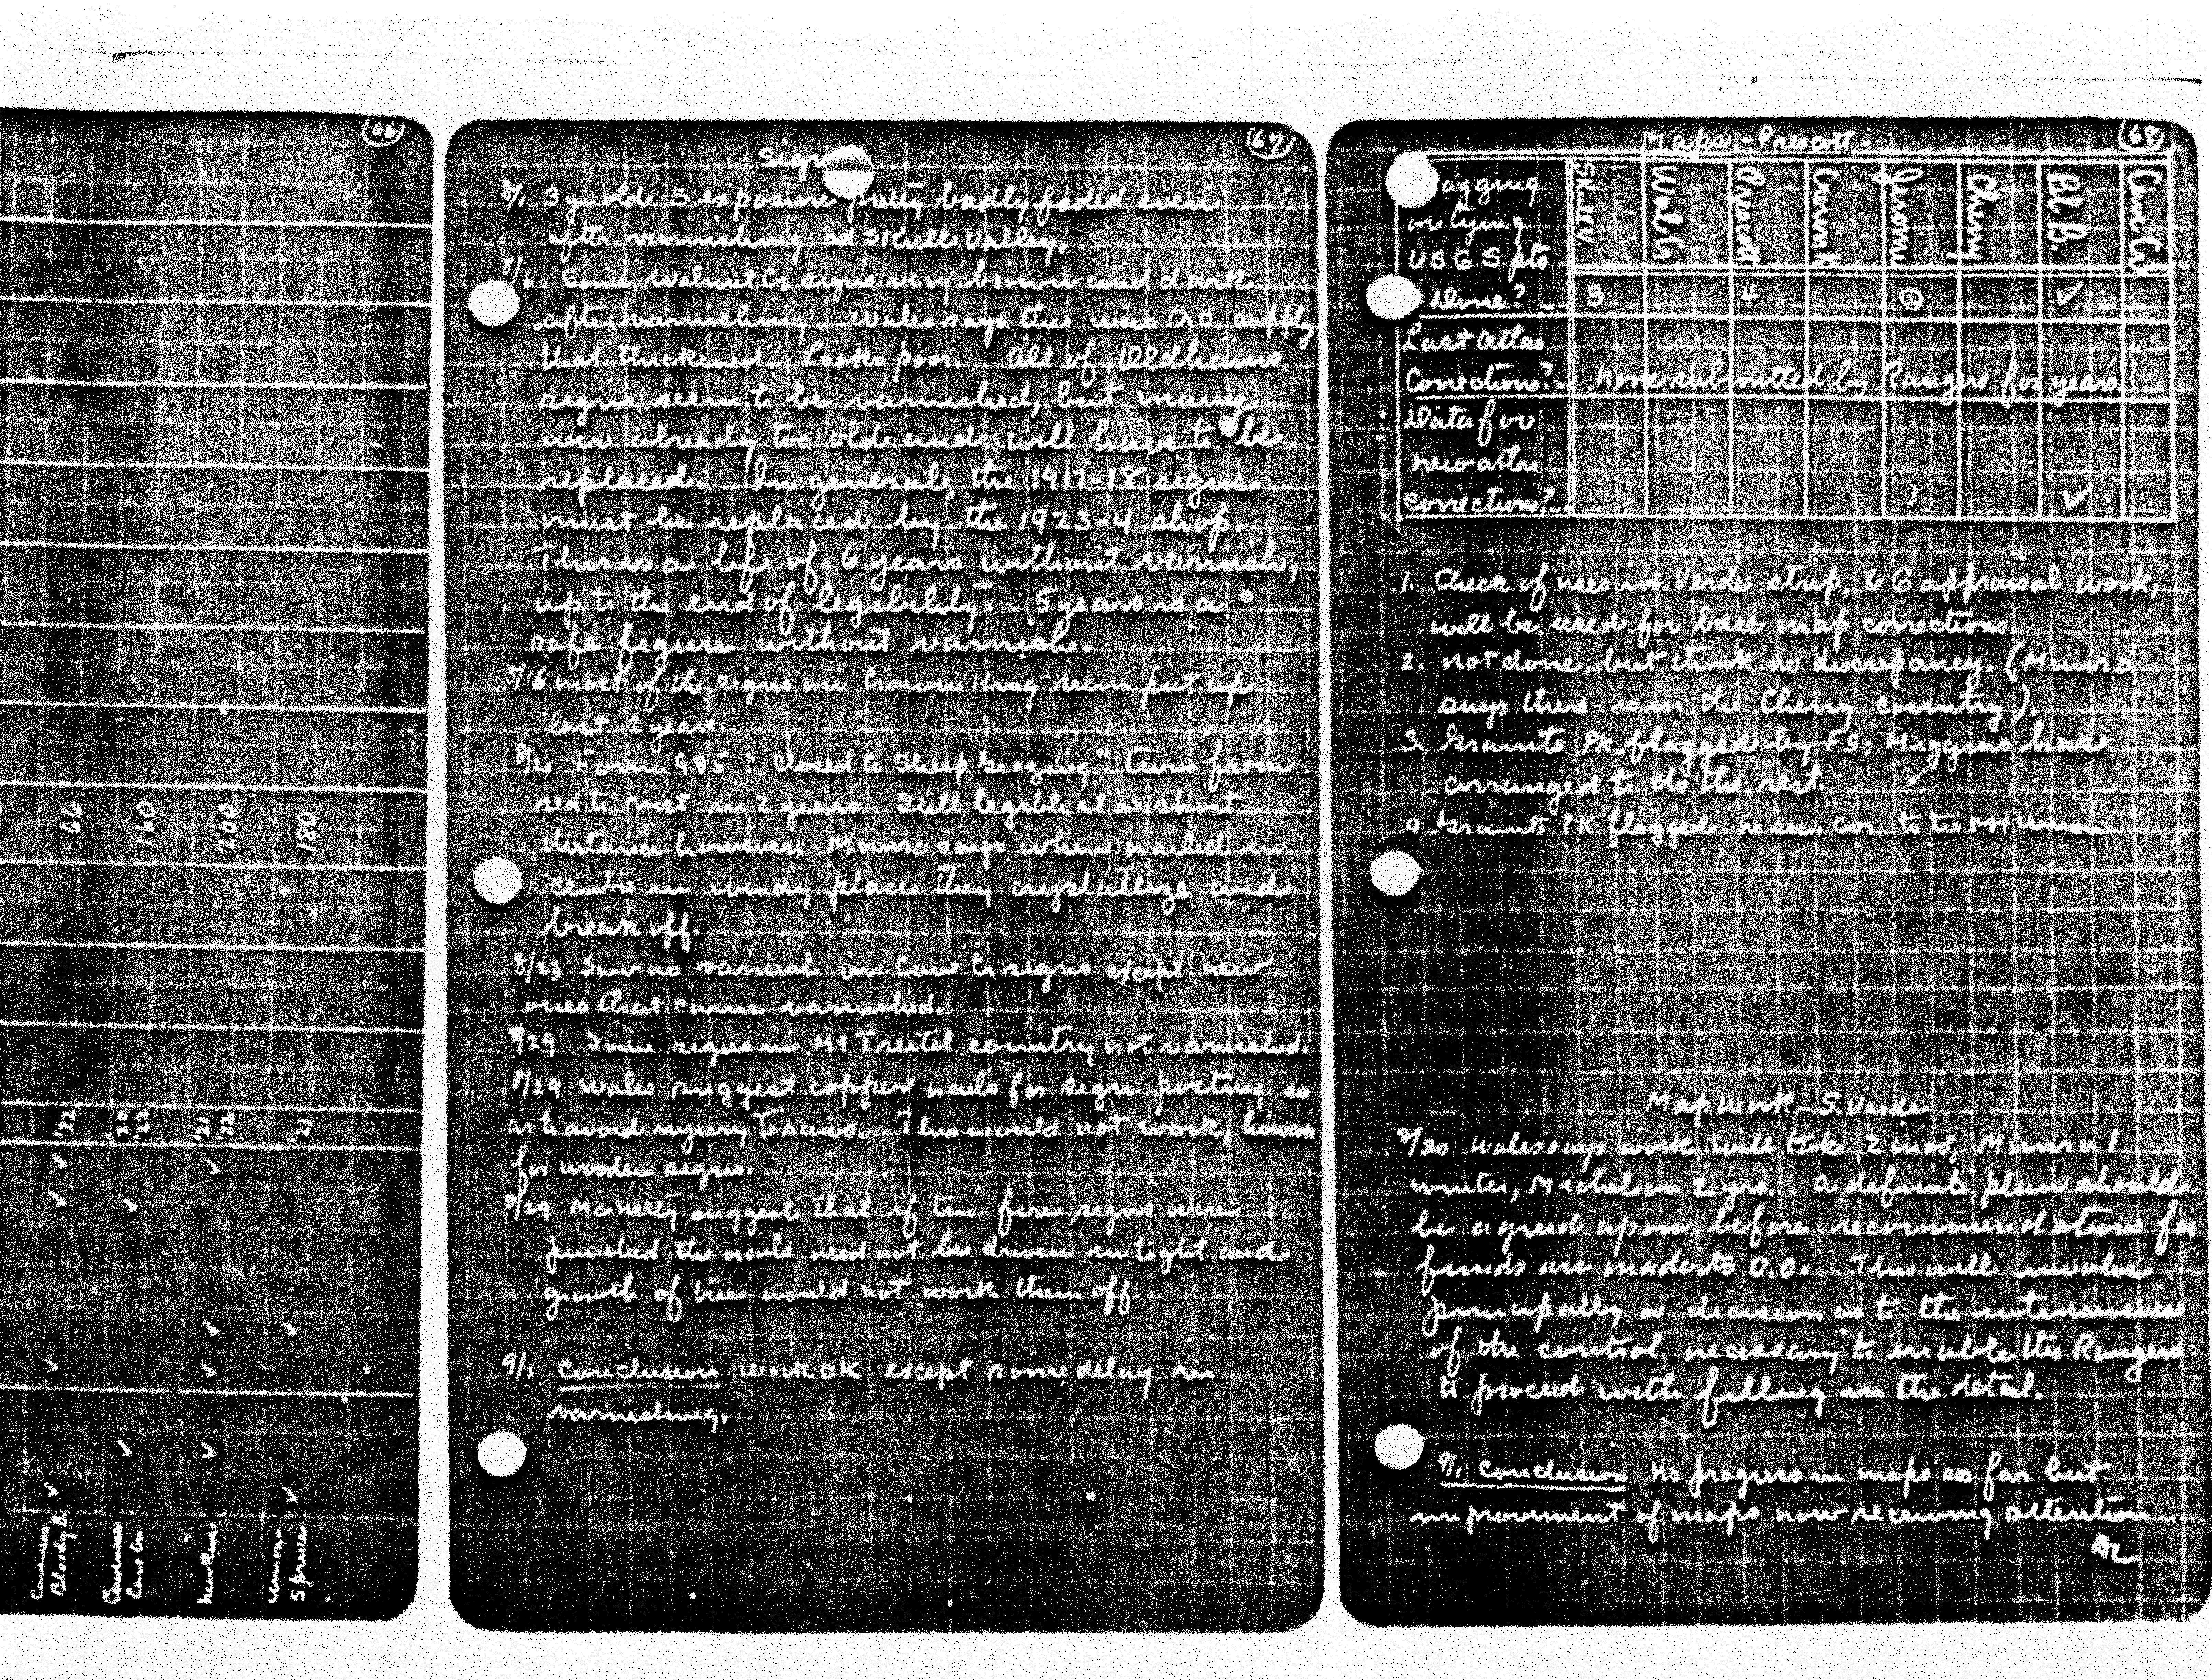 66
66
160
200
180
'22
'20
'22
'21
'22
'21
Bloody B.
Cave Cr
Spruce
67
Sign
8/1 3 yr old S exposure pretty badly faded even
after varnishing at Skull Valley.
8/6 Some Walnut Cr signs very brown and dark
after varnishing. Wales says this was D.O. supply
that thickened. Looks poor. All of Oldhams
signs seem to be varnished, but many
were already too old and will have to be
replaced. In general, the 1917-18 signs
must be replaced by the 1923-4 shop.
This is a life of 6 years without varnish,
up to the end of legibility. 5 years is a
safe figure without varnish.
8/16 most of the signs on Crown King seem put up
last 2 years.
8/21 Form 985 "Closed to Sheep Grazing" turn from
red to rust in 2 years. Still legible at a short
distance however. Munro says when nailed in
centre in windy places they crystallize and
break off.
8/23 Saw no varnish on Cave Cr signs except new
ones that came varnished.
8/29 Some signs in Mt Tritle country not varnished.
8/29 Wales suggest copper nails for sign posting so
as to avoid injury to saws. This would not work, however
for wooden signs.
8/29 McNelty suggests that if tin fire signs were
punched the nails need not be driven in tight and
growth of trees would not work them off.
9/1 Conclusion work OK except some delay in
varnishing.
68
Maps - Prescott -
Skull V Wal Cr Prescott Crown K Jerome Cherry Bl B. Cave Cr
agging
or tying
USGS pts
Done? - 3 4 ② ✓
Last atlas
Corrections? - None submitted by Rangers for years.
Data for
new atlas
corrections? - 1 ✓
1. Check of uses in Verde strip, & G appraisal work,
will be used for base map corrections.
2. Not done, but think no discrepancy. (Munro
says there is in the Cherry country).
3. Granite PK flagged by FS; Higgins has
arranged to do the rest.
4 Granite PK flagged. no sec. cor. to tie Mt Union
Map work - S. Verde
8/20 Wales says work will take 2 mos, Munro 1
winter, Michelson 2 yrs. A definite plan should
be agreed upon before recommendations for
funds are made to D.O. This will involve
principally a decision as to the intensiveness
of the control necessary to enable the Rangers
to proceed with filling in the detail.
9/1 Conclusion No progress in maps so far but
improvement of maps now receiving attention
AL